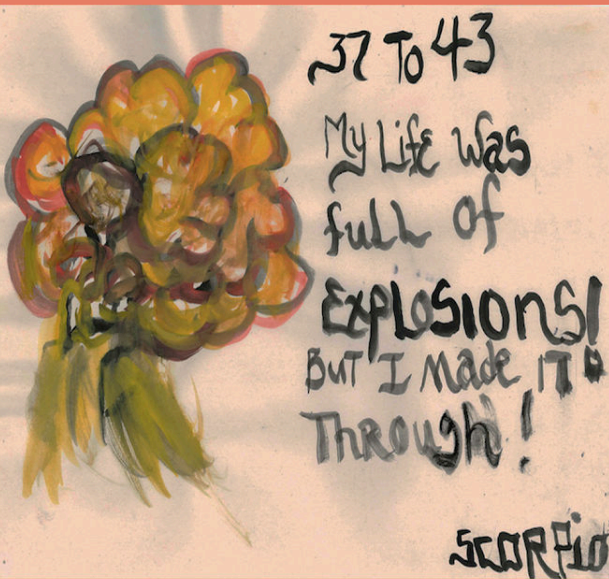 37 To 43
My Life was
full of
EXPLOSIONS!
BUT I Made IT
THROUGH!
SCORPIO